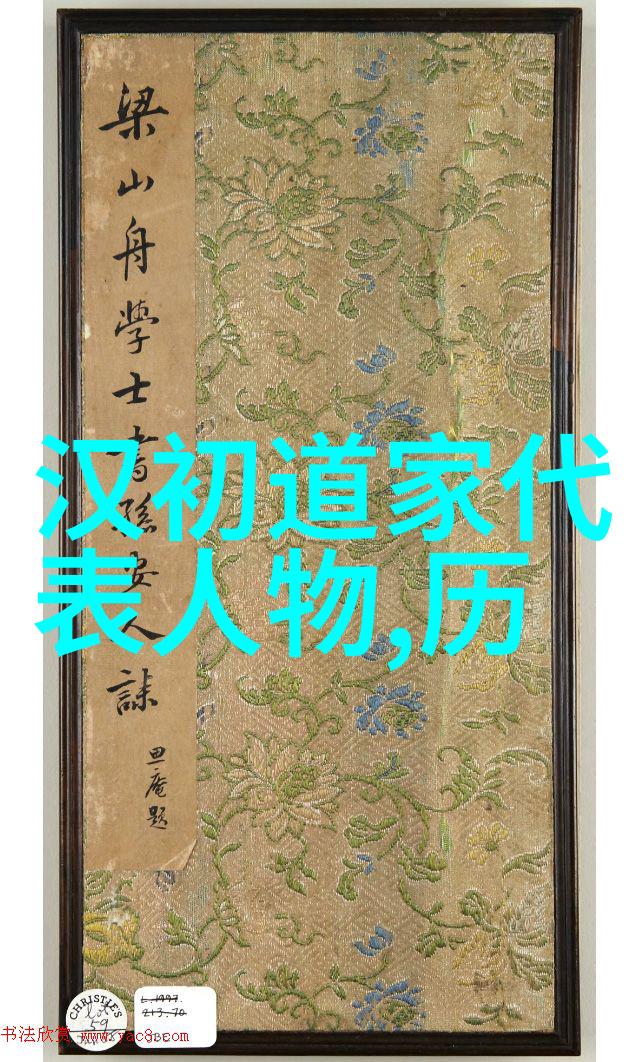 梁山舟學士書孫安人誄
思庵題
汉初道家代
表人物,历
CHRISTIE'S
lot
59
L.1997.
213.70
书法欣赏 www.yac8.com